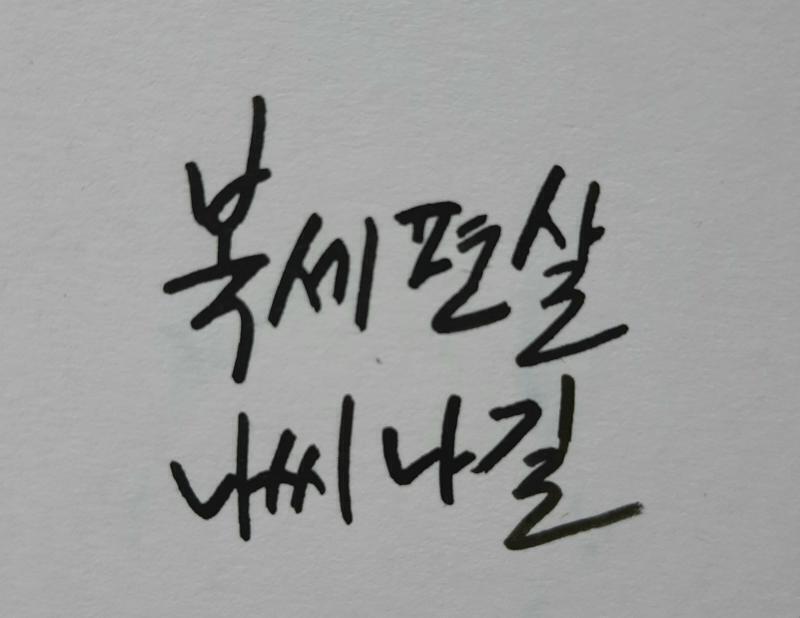 복세편살
나씨나길